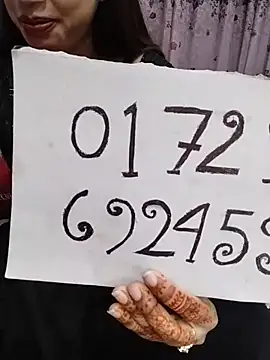 0172
692459